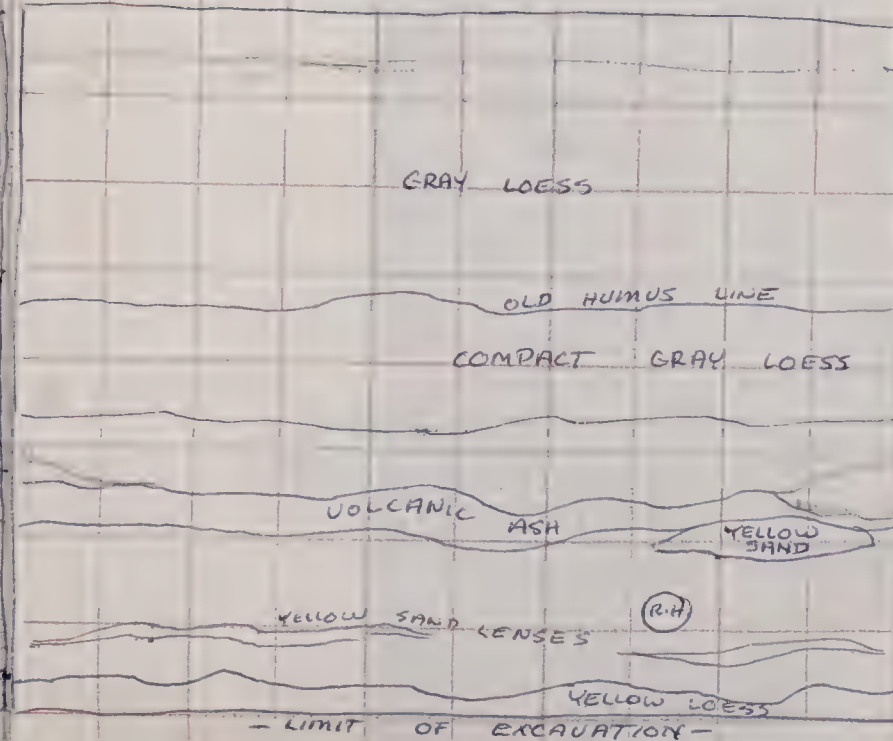 GRAY LOESS
OLD HUMUS LINE
COMPACT GRAY LOESS
VOLCANIC ASH
YELLOW
SAND
R.H
YELLOW SAND LENSES
YELLOW LOESS
- LIMIT OF EXCAVATION -